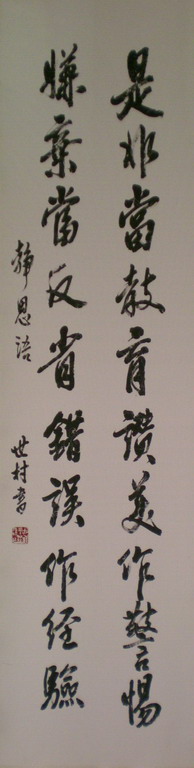 是非當教育讚美作警惕
嫌棄當反省錯誤作經驗
靜思語
世村書